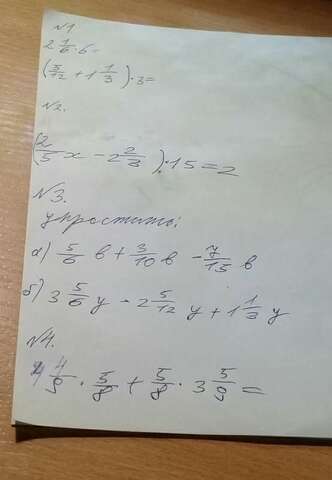 №1
2 1/6 · 6 =
(5/12 + 1 1/3) · 3 =
№2.
(2/5 x - 2 2/3) · 15 = 2
№3.
упростить:
а) 5/6 в + 3/10 в - 7/15 в
б) 3 5/6 у - 2 5/12 у + 1 1/3 у
№4.
4/9 · 5/8 + 5/8 · 3 5/9 =